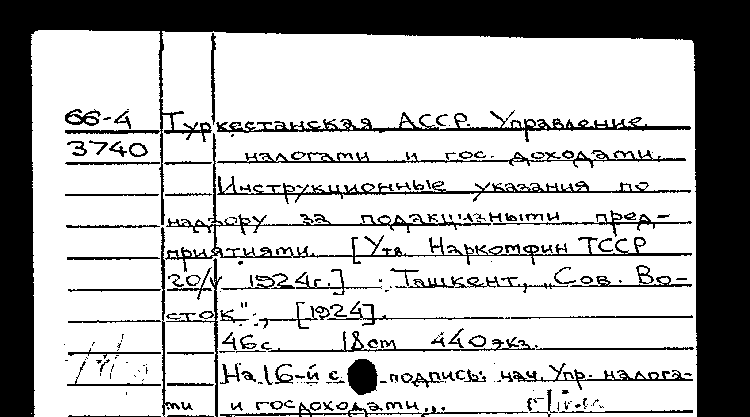 66-4 Туркестанская АССР. Управление
3740 налогами и гос. доходами.
Инструкционные указания по
надзору за подакцизными пред-
приятиями. [Утв. Наркомфин ТССР
20/V 1924г.] Ташкент, "Сов. Во-
сток", [1924].
46с. 18см 440экз.
На 16-й с подпись: нач. Упр. налога-
ми и госдоходами,.